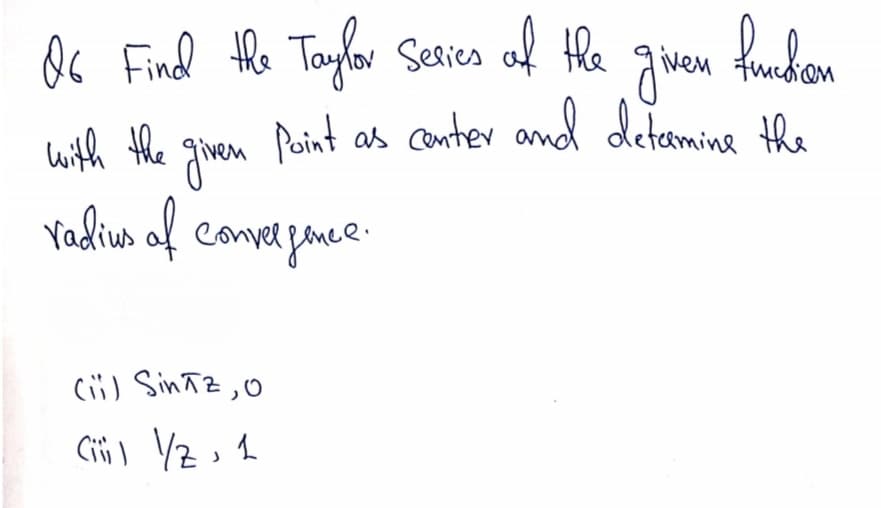 Q6 Find the Taylor Series of the given function
with the given Point as center and determine the
radius of convergence.
(ii) Sin πz , 0
(iii) 1/z , 1